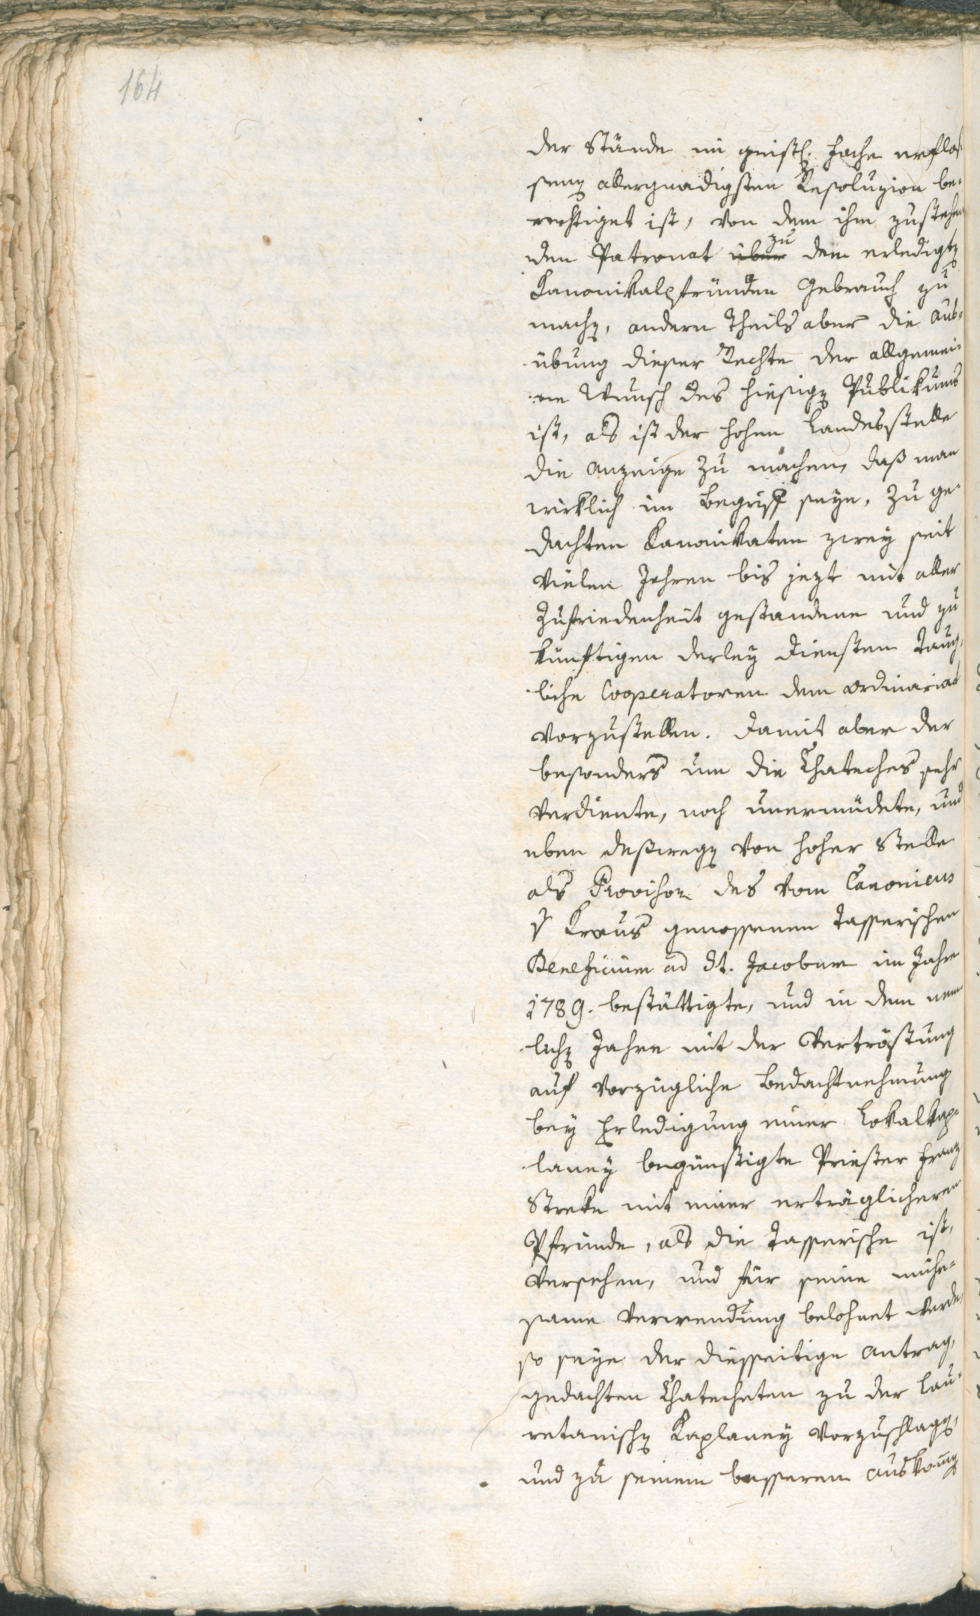 164
der Stände im geistl. Fache erflos¬
senen allergnädigsten Resoluzion be¬
rechtiget ist, von dem ihm zustehen¬
den Patronat über zu den erledigten
Kanonikalpfründen Gebrauch zu
machen, andern Theils aber die Aus¬
übung dieser Rechte der allgemei¬
ne Wunsch des hiesigen Publikums
ist, als ist der hohen Landesstelle
die Anzeige zu machen, daß man
wirklich im Begriff seye, zu ge¬
dachten Kanonikaten zwey seit
vielen Jahren bis jezt mit aller
Zufriedenheit gestandene und zu
künftigen derley Diensten taug¬
liche Cooperatoren dem Ordinariat
vorzustellen. Damit aber der
besonders um die Chateches sehr
verdiente, noch unermüdete, und
eben deßwegen von hoher Stelle
als Provisor des vom Canonicus
v Kraus genossenen Tasserischen
Benefizium ad St. Jacobum im Jahre
1789. bestättigte, und in dem nem
lichen Jahre mit der Vertröstung
auf vorzügliche Bedachtnehmung
bey Erledigung einer Lokalkap¬
laney begünstigte Priester Franz
Streke mit einer erträglicheren
Pfründe, als die Tasserische ist,
versehen, und für seine mühe¬
same Verwendung belohnet werde,
so seye der diesseitige Antrag,
gedachten Chatecheten zu der Lau¬
retanischen Kaplaney vorzuschlagen,
und zu seinem besseren Auskommen